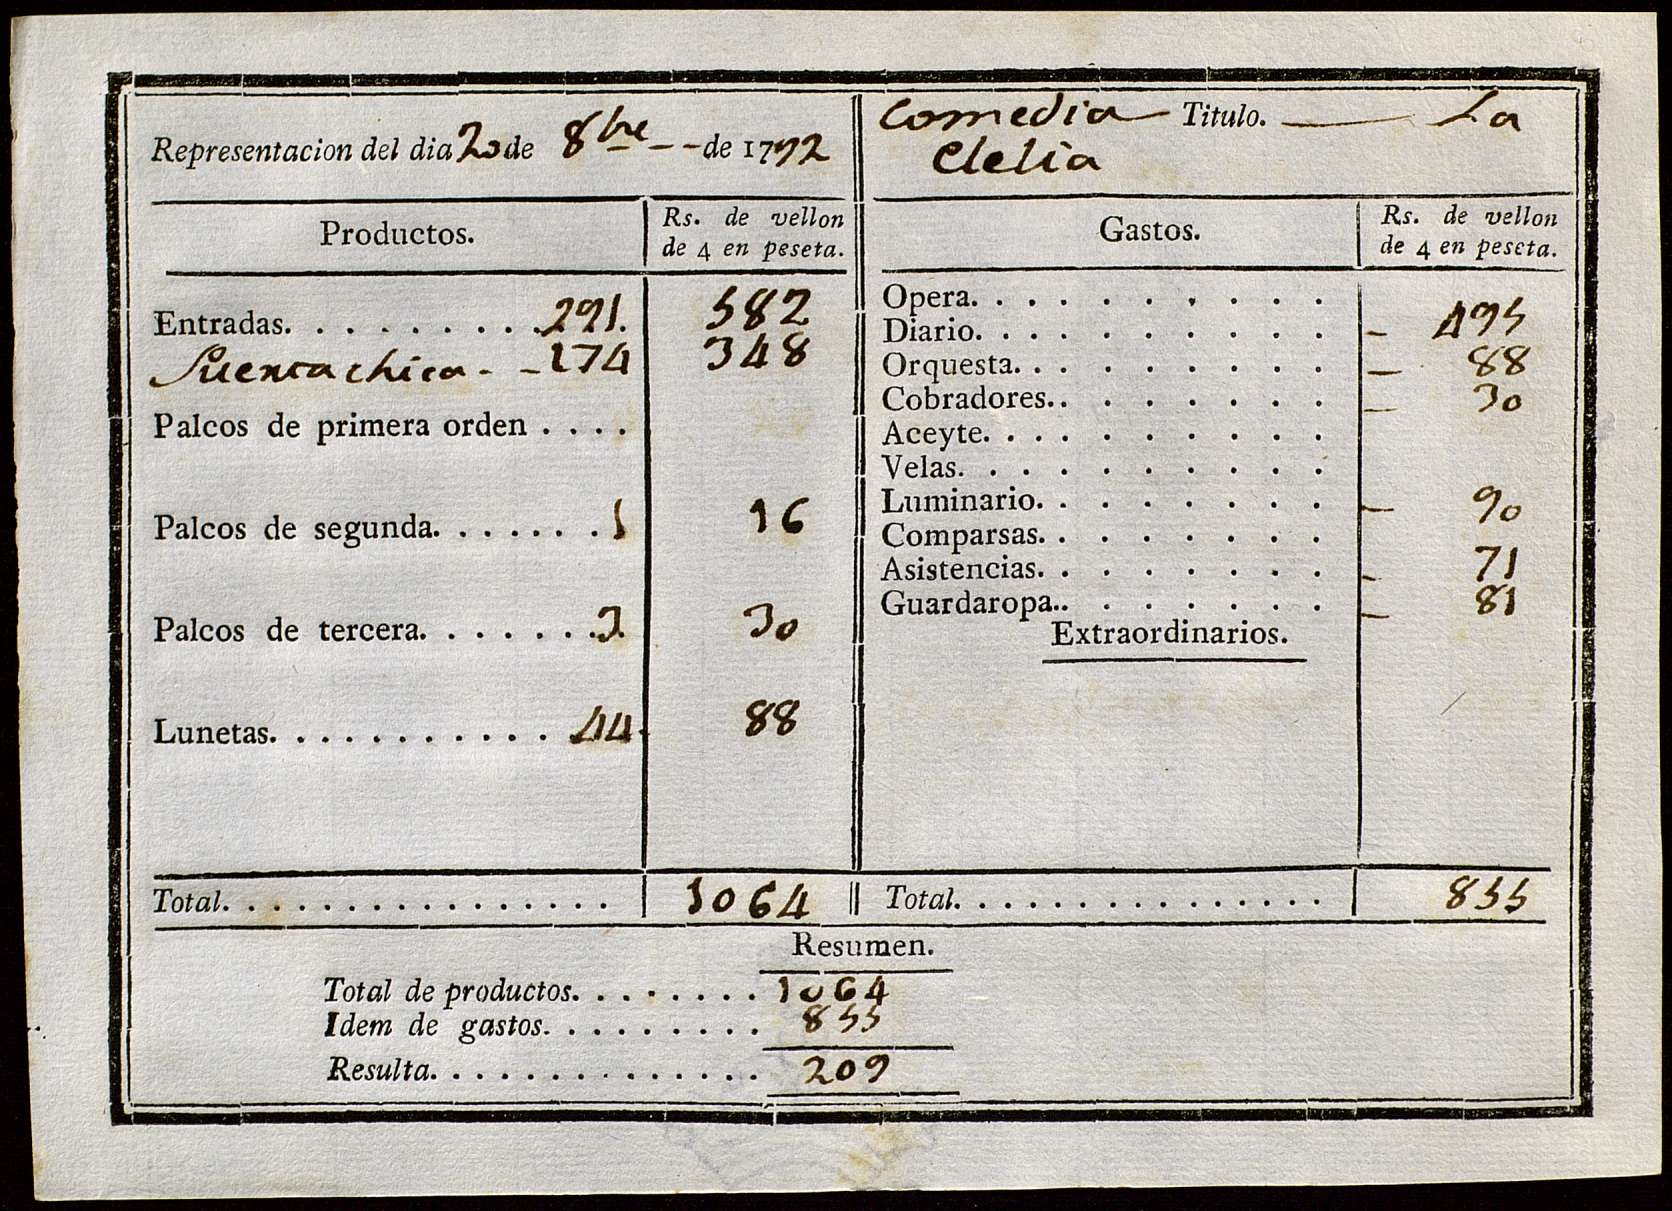 Representacion del dia 20 de 8bre -- de 1792
Comedia Titulo. — La
Clelia
Productos.
Rs. de vellon
de 4 en peseta.
Entradas. . . . . . . . . . 291. 582
Puerta chica - - 174 348
Palcos de primera orden . . . .
Palcos de segunda. . . . . . . 1 16
Palcos de tercera. . . . . . . 3. 30
Lunetas. . . . . . . . . . . . 44. 88
Total. . . . . . . . . . . . . . . . 1064
Gastos.
Rs. de vellon
de 4 en peseta.
Opera. . . . . . . . . . .
Diario. . . . . . . . . . . - 495
Orquesta. . . . . . . . . — 88
Cobradores. . . . . . . . — 30
Aceyte. . . . . . . . . .
Velas. . . . . . . . . . .
Luminario. . . . . . . . — 90
Comparsas. . . . . . . .
Asistencias. . . . . . . . - 71
Guardaropa.. . . . . . . - 81
Extraordinarios.
Total. . . . . . . . . . . . . . . 855
Resumen.
Total de productos. . . . . . . . 1064
Idem de gastos. . . . . . . . . 855
Resulta. . . . . . . . . . . . . . 209